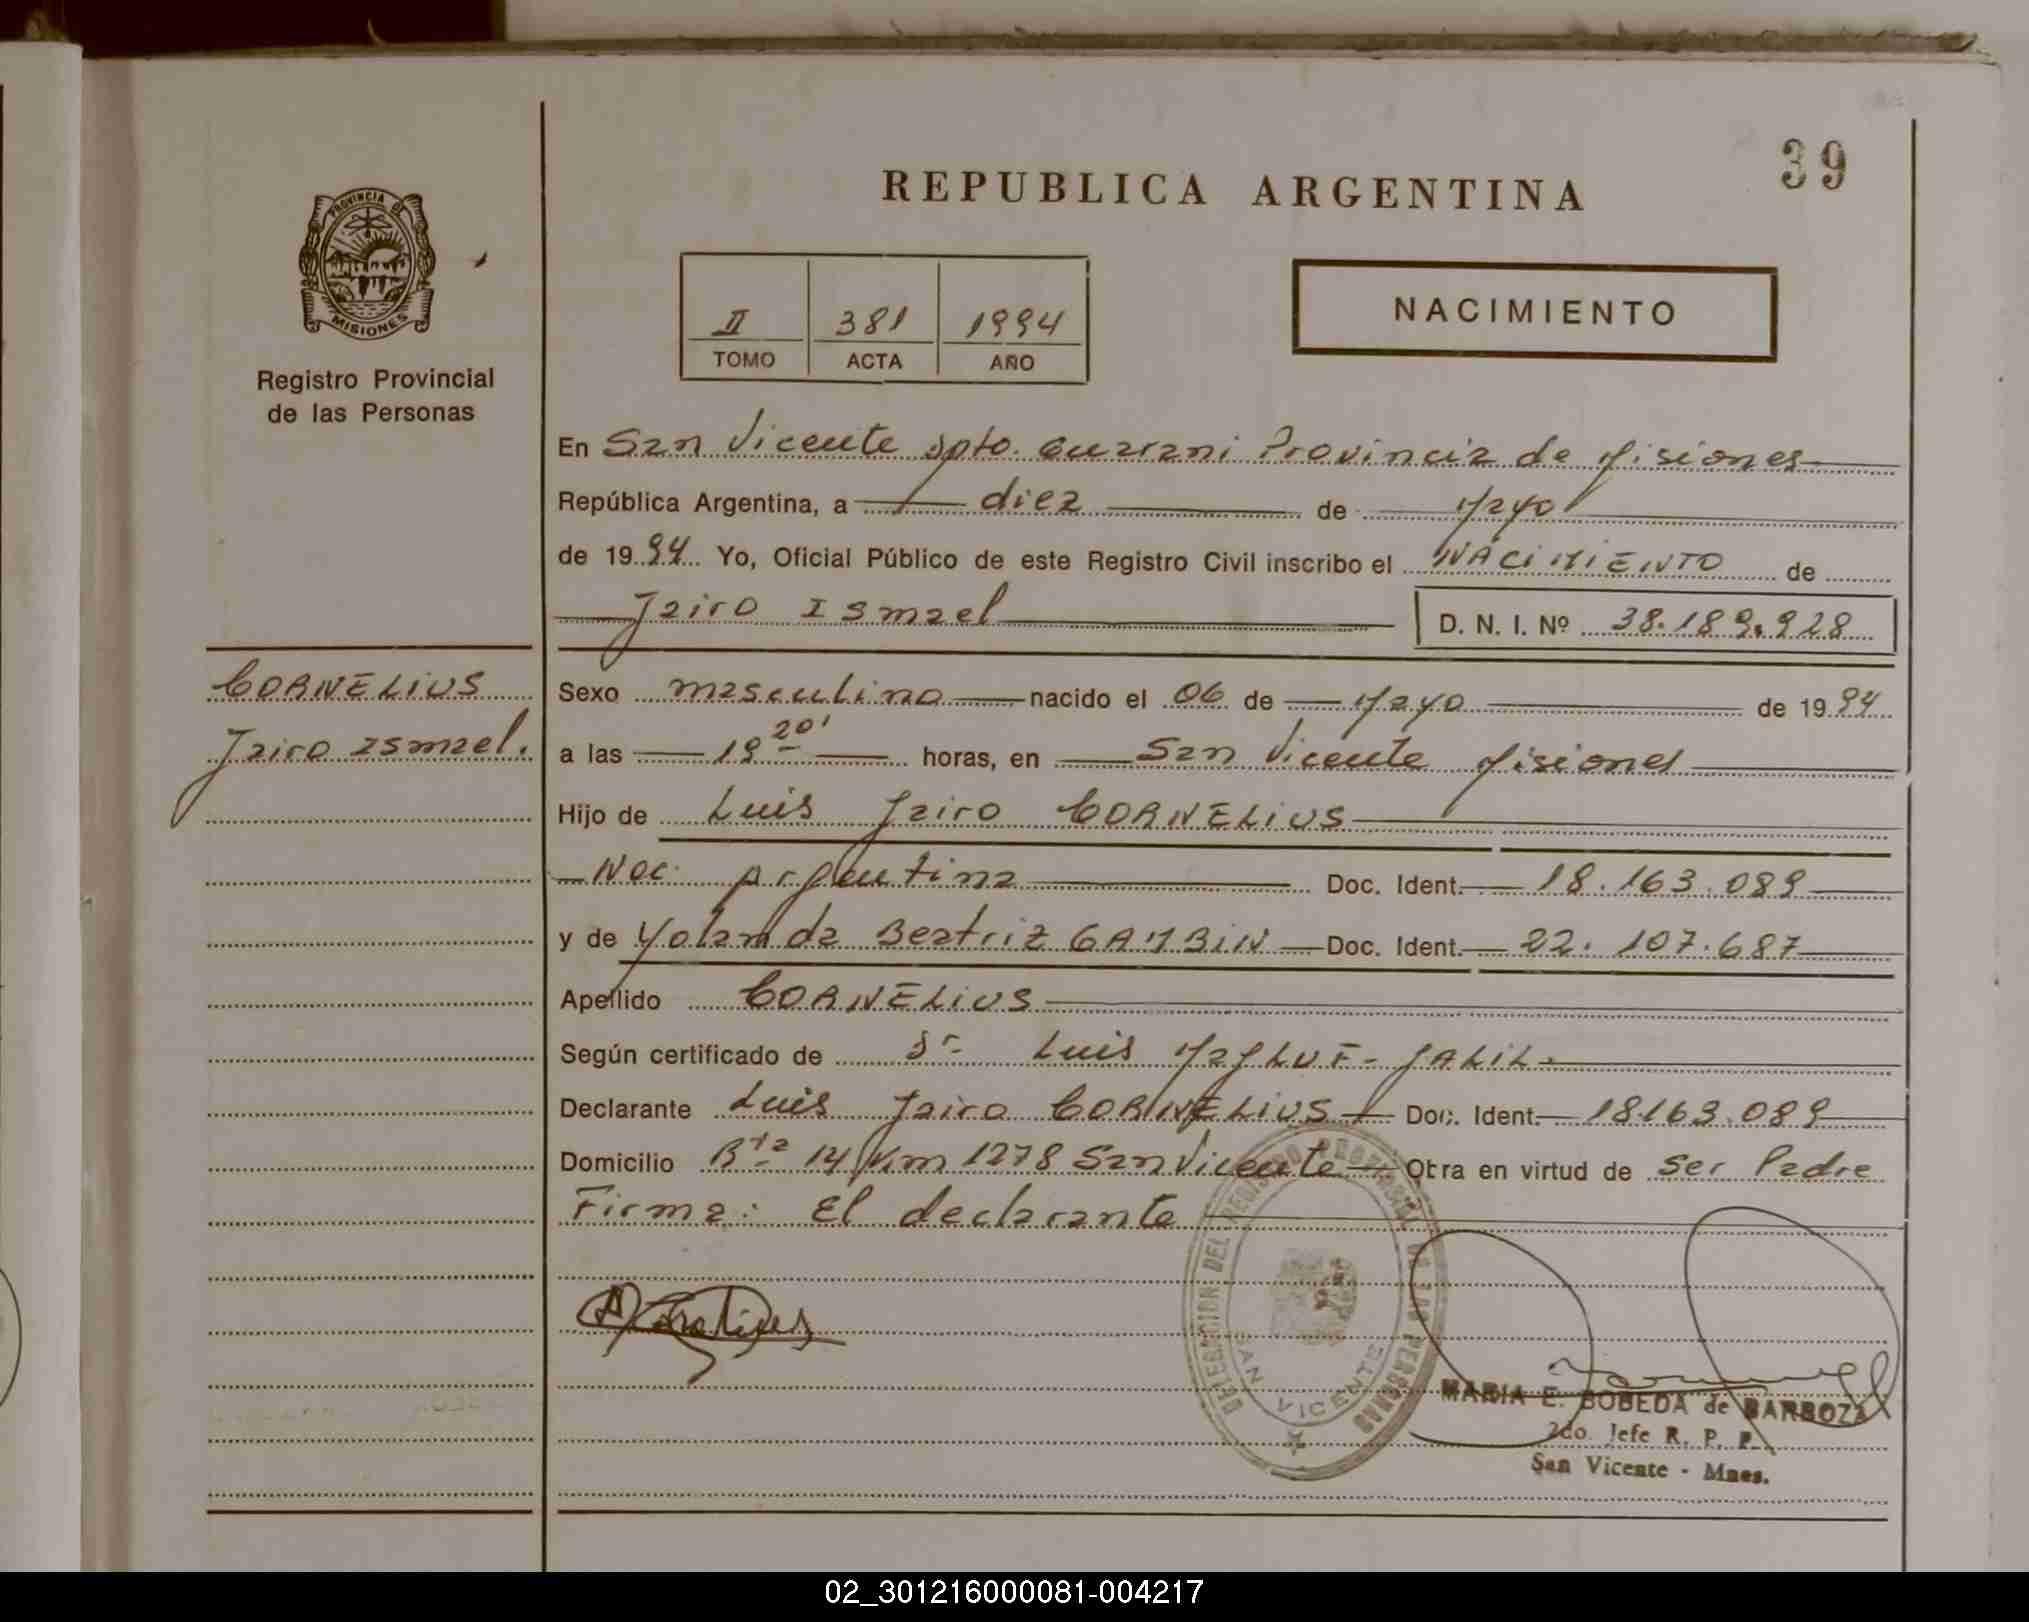 39
REPUBLICA ARGENTINA
PROVINCIA DE
MISIONES
Registro Provincial
de las Personas
II 381 1994
TOMO ACTA AÑO
NACIMIENTO
En San Vicente Dpto. Guarani Provincia de Misiones
República Argentina, a diez de Mayo
de 1994 Yo, Oficial Público de este Registro Civil inscribo el NACIMIENTO de
Jairo Ismael D. N. I. Nº 38.189.928
CORNELIUS
Jairo Ismael.
Sexo masculino nacido el 06 de Mayo de 1994
a las 19 20' horas, en San Vicente Misiones
Hijo de Luis Jairo CORNELIUS
Nac. Argentina Doc. Ident. 18.163.089
y de Yolanda Beatriz GAMBIN Doc. Ident. 22.107.687
Apellido CORNELIUS
Según certificado de Dr. Luis MaGLUF-JALIL.
Declarante Luis Jairo CORNELIUS Doc. Ident. 18.163.089
Domicilio Rta 14 Km 1278 San Vicente Obra en virtud de ser Padre
Firma: El declarante
DELEGACION DEL REGISTRO PROVINCIAL DE LAS PERSONAS
SAN VICENTE
MARIA E. BOBEDA de BARBOZA
2do. Jefe R. P. P.
San Vicente - Mnes.
02_301216000081-004217